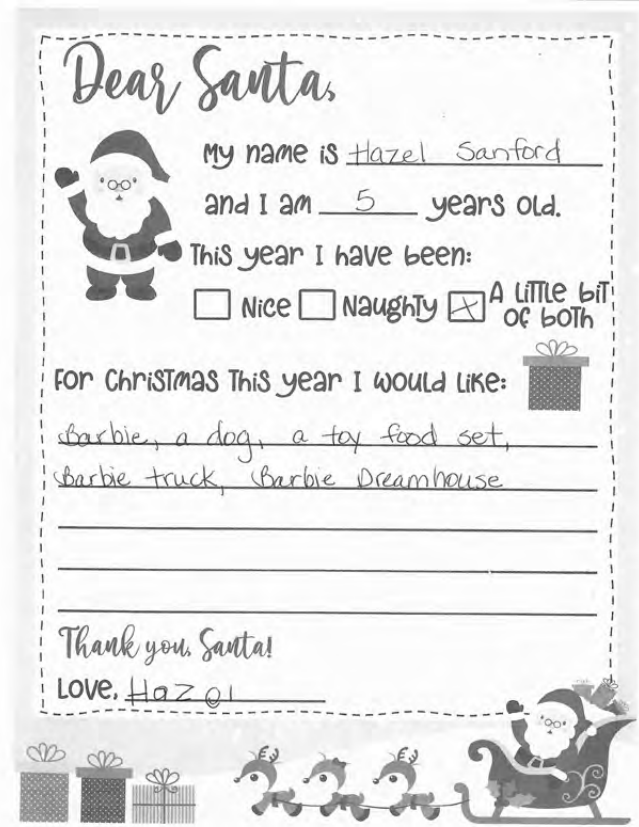 Dear Santa,
My name is Hazel Sanford
and I am 5 years old.
This year I have been:
Nice Naughty A little bit of both
For Christmas this year I would like:
Barbie, a dog, a toy food set,
Barbie truck, Barbie Dreamhouse
Thank you, Santa!
Love, Hazel